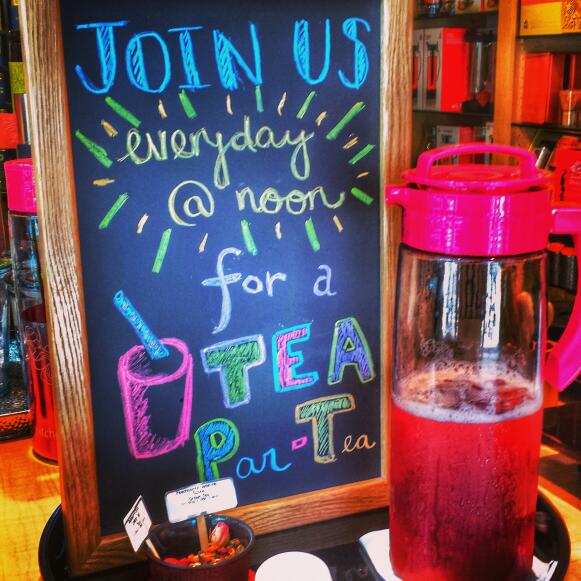 JOIN US
everyday
@ noon
for a
TEA
Par-Tea